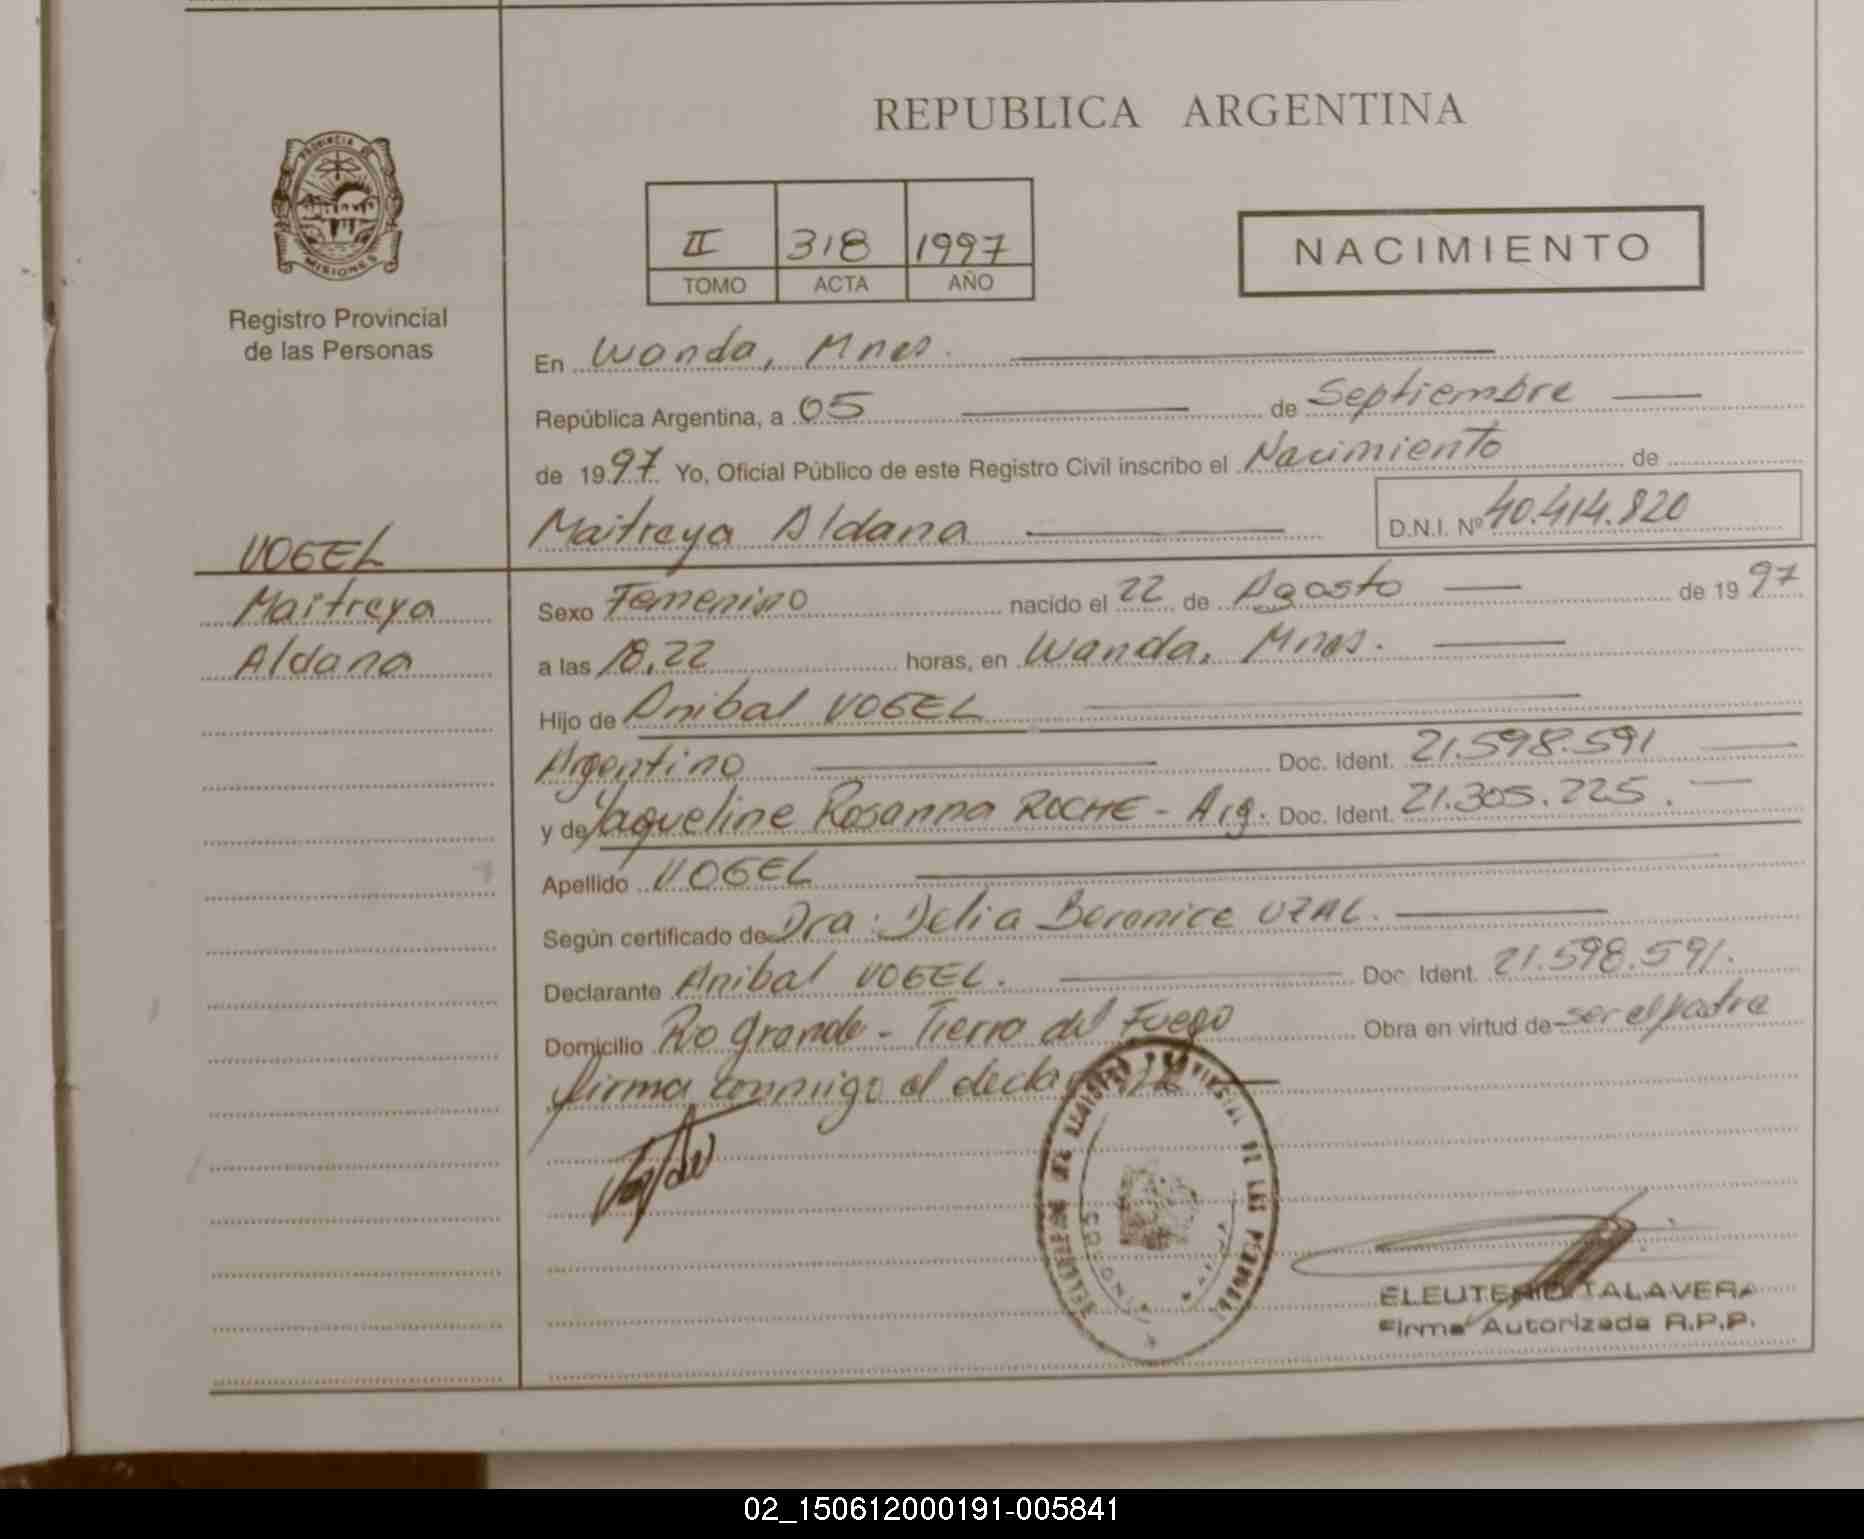 REPUBLICA ARGENTINA
PROVINCIA DE
MISIONES
Registro Provincial
de las Personas
II 318 1997
TOMO ACTA AÑO
NACIMIENTO
En Wanda, Mnes.
República Argentina, a 05 de Septiembre
de 1997 Yo, Oficial Público de este Registro Civil inscribo el Nacimiento de
Maitreya Aldana D.N.I. Nº 40.414.820
VOGEL
Maitreya
Aldana
Sexo Femenino nacido el 22 de Agosto de 1997
a las 18,22 horas, en Wanda, Mnes.
Hijo de Anibal VOGEL
Argentino Doc. Ident. 21.598.591
y de Yaqueline Rosanna ROCHE - Arg. Doc. Ident. 21.305.225.
Apellido VOGEL
Según certificado de Dra. Delia Beronice UZAL.
Declarante Anibal VOGEL. Doc. Ident. 21.598.591.
Domicilio Rio Grande - Tierra del Fuego Obra en virtud de ser el padre
firma conmigo el declarante
REGISTRO PROVINCIAL DE LAS PERSONAS
MISIONES
ELEUTERIO TALAVERA
Firma Autorizada R.P.P.
02_150612000191-005841